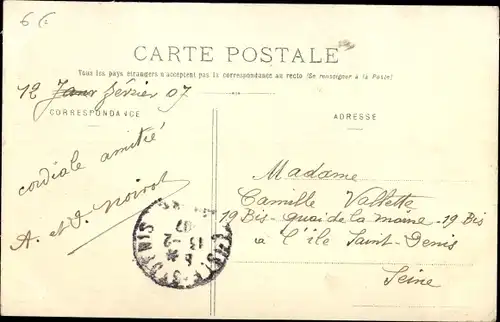 6 €
CARTE POSTALE
Tous les pays étrangers n'acceptent pas la correspondance au recto (Se renseigner à la Poste)
12 Janv février 07
CORRESPONDANCE
ADRESSE
cordiale amitié
A. et J. Noirot
Madame
Camille Vallette
19 Bis - quai de la marne - 19 Bis
à l'île Saint-Denis
Seine
ST DENIS
13 - 2
07